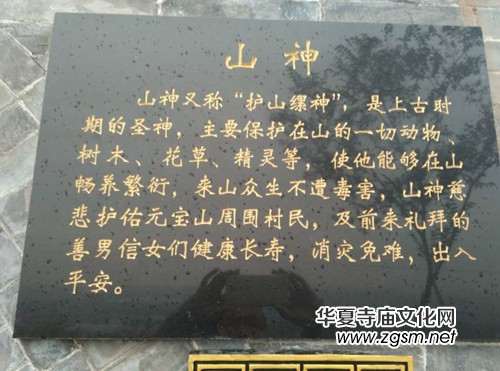 山神
山神又称“护山缧神”，是上古时
期的圣神，主要保护在山的一切动物、
树木、花草、精灵等，使他能够在山
畅养繁衍，来山众生不遭毒害，山神慈
悲护佑元宝山周围村民，及前来礼拜的
善男信女们健康长寿，消灾免难，出入
平安。
华夏寺庙文化网
www.zgsm.net